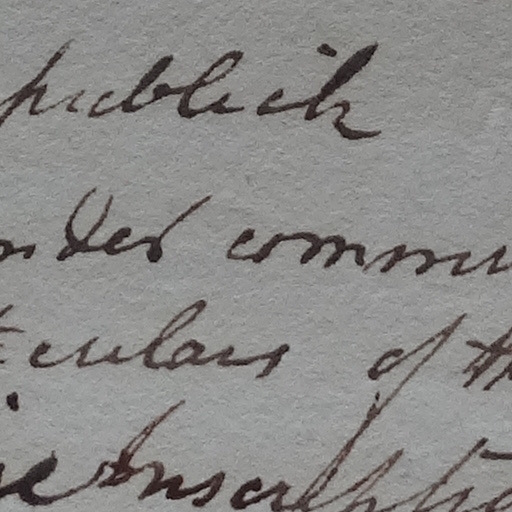 publick
nder commu
ticulars of th
Inscriptio